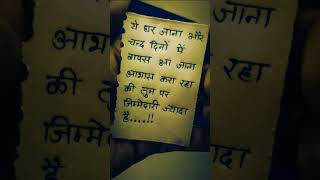 ये घर जाना और
चन्द दिनों में
वापस आ जाना
आभास करा रहा
की तुम पर
जिम्मेदारी ज्यादा
है....!!